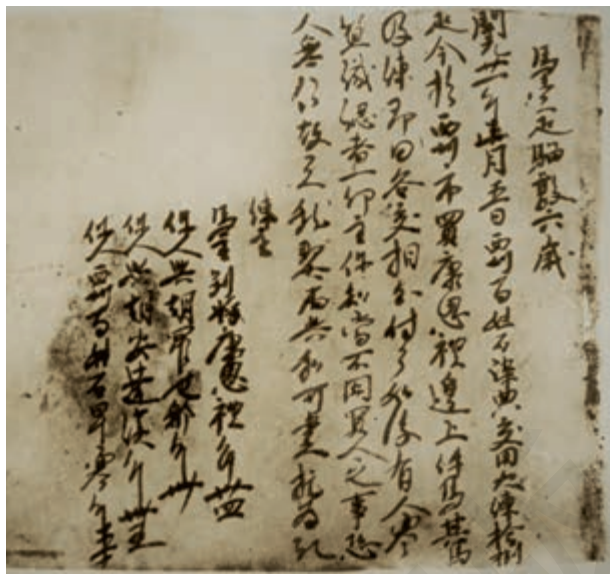 馬壹疋騮敦六歲
開元廿一年正月五日西州百姓石染典交用大練拾捌
疋今於西州市買康思禮邊上件馬其馬
及練即日各交相分付了如後有人寒
盜識認者一仰主保知當不關買人之事恐
人無信故立私契兩共和可畫指為記
練主
馬主別將康思禮年卅四
保人興胡羅也那年卌
保人興胡安達漢年卌五
保人西州百姓石早寒年五十